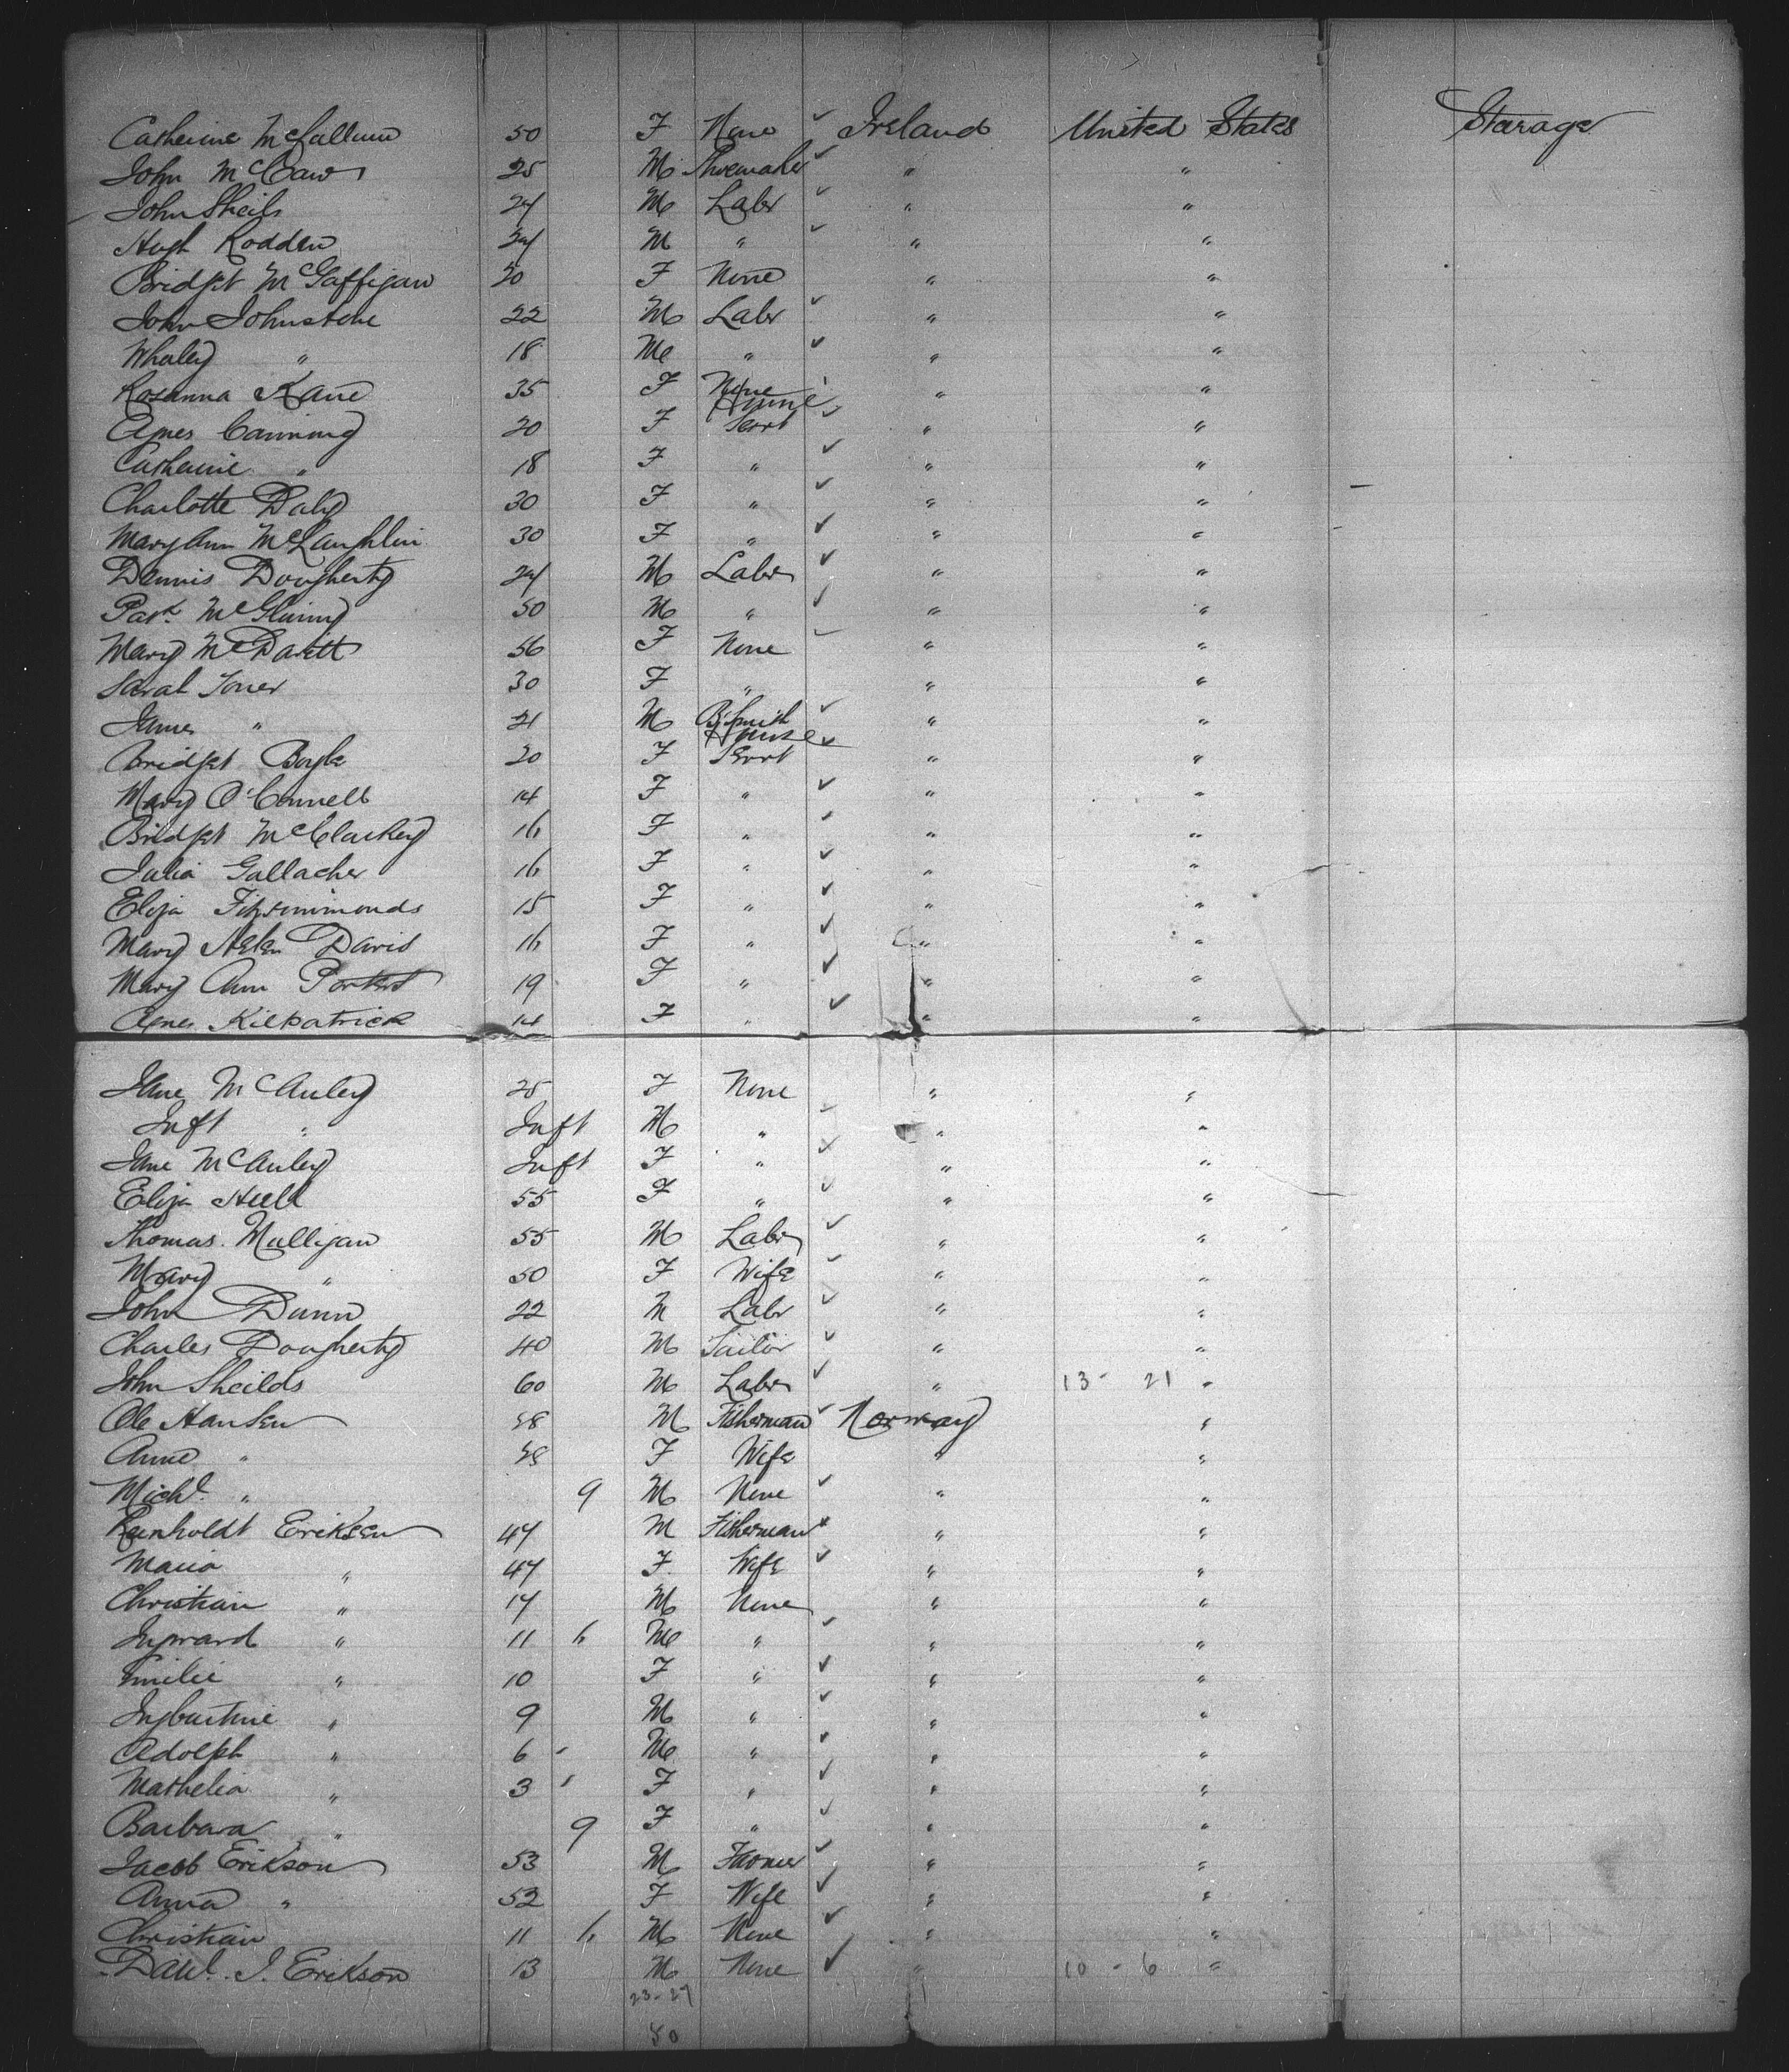 Catherine McCallum 50 F None Ireland United States Starage
John McCaw 25 M Shoemaker " "
John Sheils 24 M Labr " "
Hugh Rodden 24 M " " "
Bridget McGaffigan 20 F None " "
John Johnstone 22 M Labr " "
Whaley " 18 M " " "
Rosanna Kane 35 F None " "
Agnes Canning 20 F House Servt " "
Catherine " 18 F " " "
Charlotte Daly 30 F " " "
Mary Ann McLaughlin 30 F " " "
Dennis Dougherty 24 M Labr " "
Patk McGlinny 50 M " " "
Mary McDavitt 56 F None " "
Sarah Toner 30 F " " "
James " 21 M B.Smith " "
Bridget Boyle 20 F House Servt " "
Mary O'Connell 14 F " " "
Bridget McClaskey 16 F " " "
Julia Gallacher 16 F " " "
Eliza Fitzsimmonds 15 F " " "
Mary Helen Davis 16 F " " "
Mary Ann Porter 19 F " " "
Agnes Kilpatrick 14 F " " "
Jane McAuley 25 F None " "
Inft " Inft M " " "
Jane McAuley Inft F " " "
Eliza Hull 55 F " " "
Thomas Mulligan 55 M Labr " "
Mary " 50 F Wife " "
John Dunn 22 M Labr " "
Charles Dougherty 40 M Tailor " "
John Sheilds 60 M Labr " 13 - 21 "
Ole Hansen 48 M Fisherman Norway "
Anne " 48 F Wife " "
Michl. " 9 M None " "
Reinholdt Eriksen 47 M Fisherman " "
Maria " 47 F Wife " "
Christian " 14 M None " "
Ingvard " 11 6 M " " "
Emilie " 10 F " " "
" 9 M " " "
Adolph " 6 M " " "
Mathelia " 3 F " " "
Barbara " 9 F " " "
Jacob Erikson 53 M Farmer " "
Anna " 52 F Wife " "
Christian 11 6 M None " "
Danl. J. Erikson 13 M None " 10 - 6 "
23-27
50